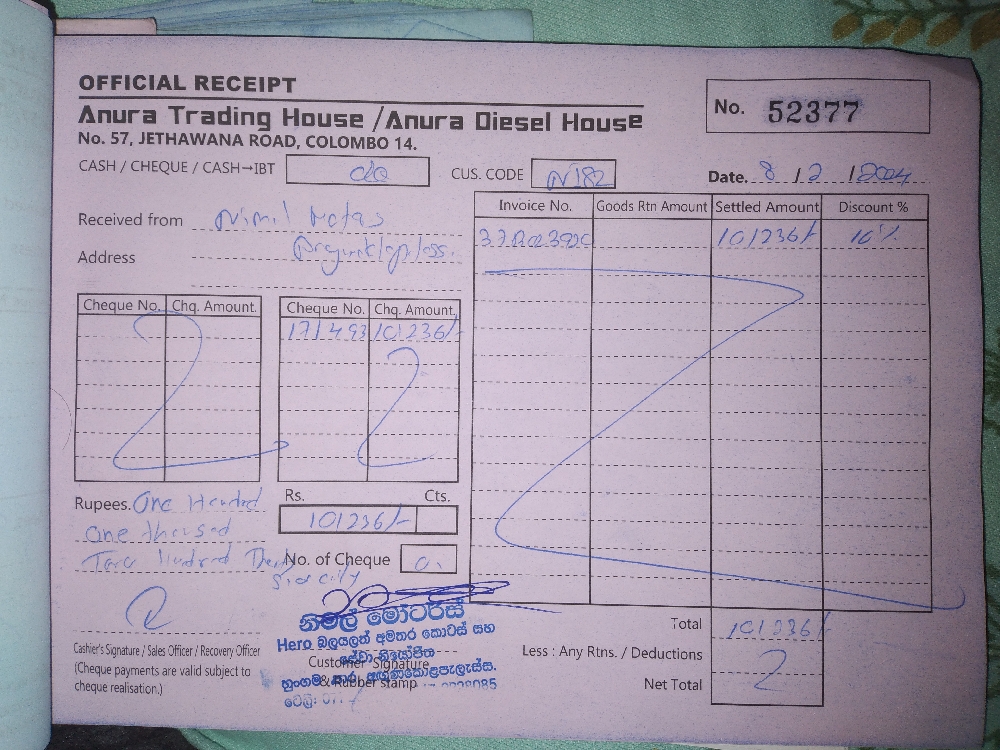 OFFICIAL RECEIPT
Anura Trading House /Anura Diesel House
No. 57, JETHAWANA ROAD, COLOMBO 14.
No. 52377
CASH / CHEQUE / CASH→IBT
CUS. CODE N182
Date. 8 / 2 / 2024
Received from Nimil Motas
Address
Invoice No. Goods Rtn Amount Settled Amount Discount %
101236/- 16%
Cheque No. Chq. Amount. Cheque No. Chq. Amount.
171493 101236/-
Rupees. One Hundred
One thousand
Two Hundred
Rs. Cts.
101236/-
No. of Cheque
නිමල් මෝටර්ස්
Hero බලයලත් අමතර කොටස් සහ
සේවා නියෝජිත
Cashier's Signature / Sales Officer / Recovery Officer
(Cheque payments are valid subject to
cheque realisation.)
Customer Signature
& Rubber stamp
Total 101236/-
Less : Any Rtns. / Deductions
Net Total